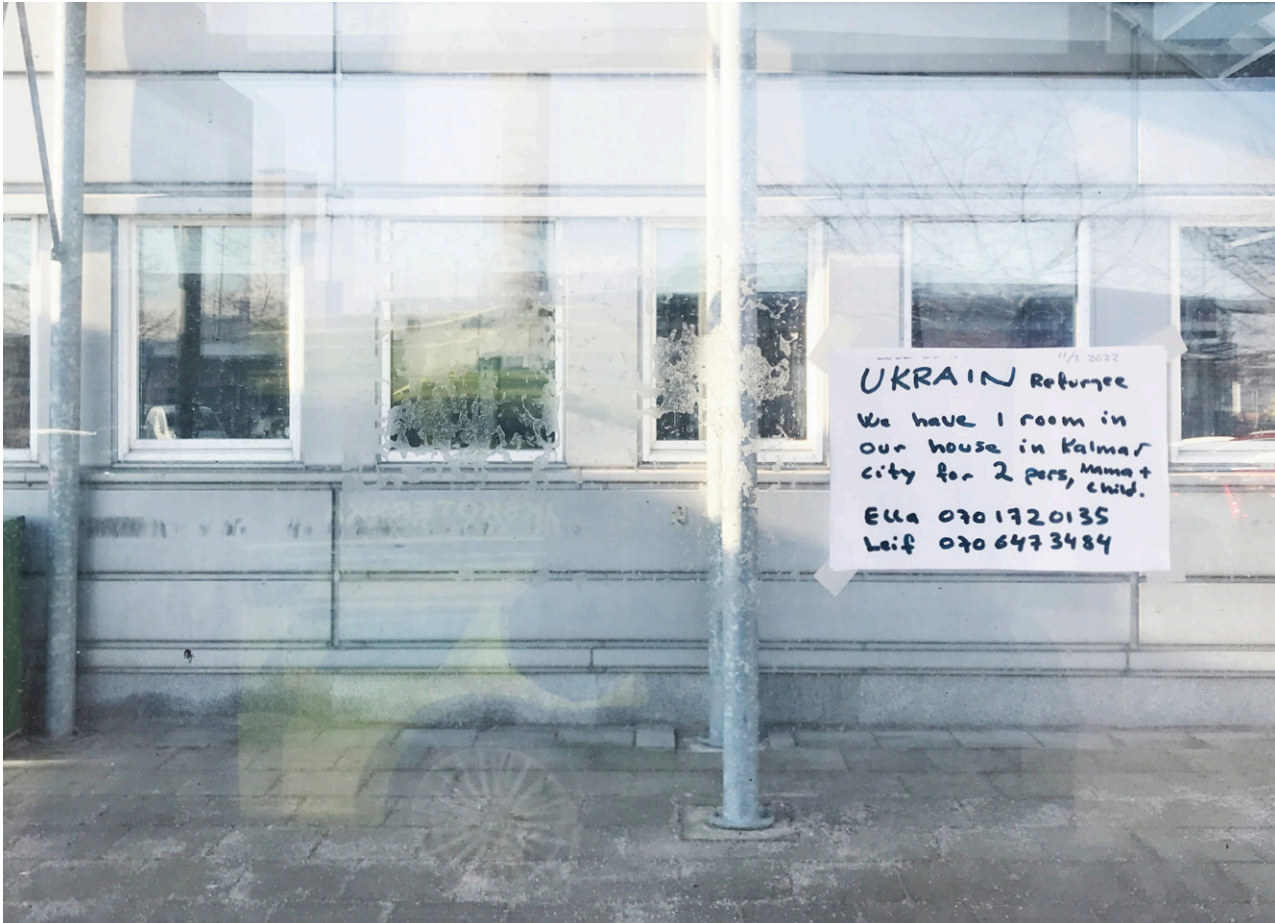 11/3 2022
UKRAIN Refurgee
We have 1 room in
our house in Kalmar
city for 2 pers, mma +
child.
Ella 070 1720135
Leif 070 6473484